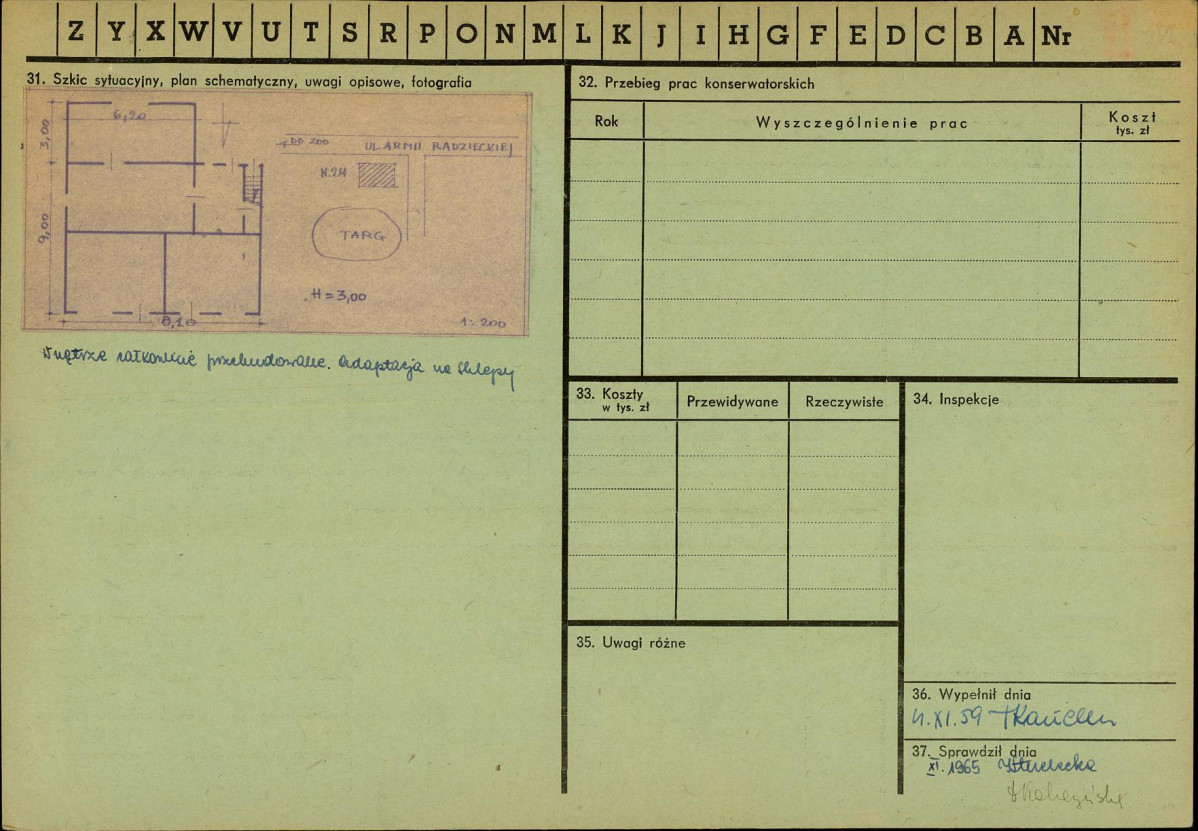 Z Y X W V U T S R P O N M L K J I H G F E D C B A Nr
31. Szkic sytuacyjny, plan schematyczny, uwagi opisowe, fotografia
6,20
3,00
9,00
8,10
DO ZOO
UL. ARMII RADZIECKIEJ
TARG
H = 3,00
1:200
Wnętrze całkowicie przebudowane. Adaptacja na sklepy
32. Przebieg prac konserwatorskich
Rok
Wyszczególnienie prac
Koszt
tys. zł
33. Koszty
w tys. zł
Przewidywane
Rzeczywiste
34. Inspekcje
35. Uwagi różne
36. Wypełnił dnia
XI.59
37. Sprawdził dnia
XI. 1965